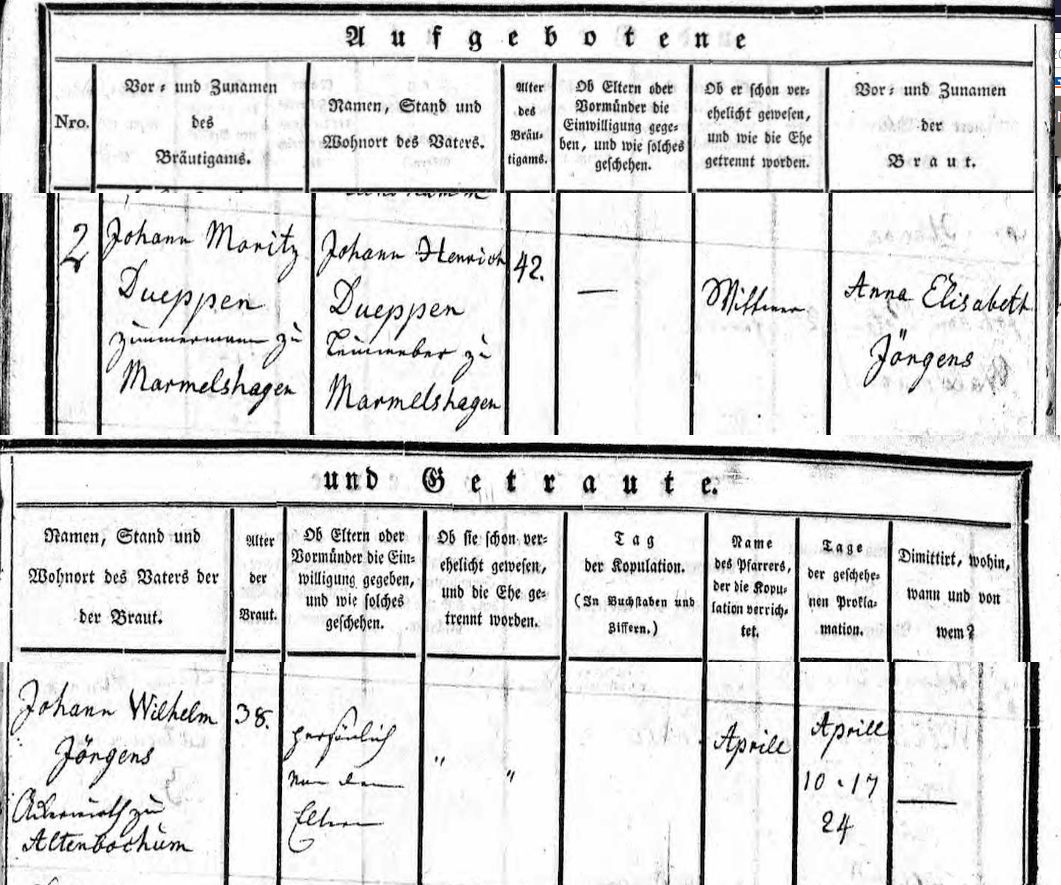 Aufgebotene
Nro.
Vor- und Zunamen
des
Bräutigams.
Namen, Stand und
Wohnort des Vaters.
Alter
des
Bräu-
tigams.
Ob Eltern oder
Vormünder die
Einwilligung gege-
ben, und wie solches
geschehen.
Ob er schon ver-
ehelicht gewesen,
und wie die Ehe
getrennt worden.
Vor- und Zunamen
der
Braut.
2
Johann Moritz
Dueppen
Zimmermann zu
Marmelshagen
Johann Henrich
Dueppen
zu
Marmelshagen
42.
—
Anna Elisabeth
Jörgens
und Getraute.
Namen, Stand und
Wohnort des Vaters der
der Braut.
Alter
der
Braut.
Ob Eltern oder
Vormünder die Ein-
willigung gegeben,
und wie solches
geschehen.
Ob sie schon ver-
ehelicht gewesen,
und die Ehe ge-
trennt worden.
Tag
der Kopulation.
(In Buchstaben und
Ziffern.)
Name
des Pfarrers,
der die Kopu-
lation verrich-
tet.
Tage
der geschehe-
nen Prokla-
mation.
Dimittirt, wohin,
wann und von
wem?
Johann Wilhelm
Jörgens
Ackerwirth zu
Altenbochum
38.
persönlich
von den
Eltern
" "
Aprill
Aprill
10 . 17
24
—